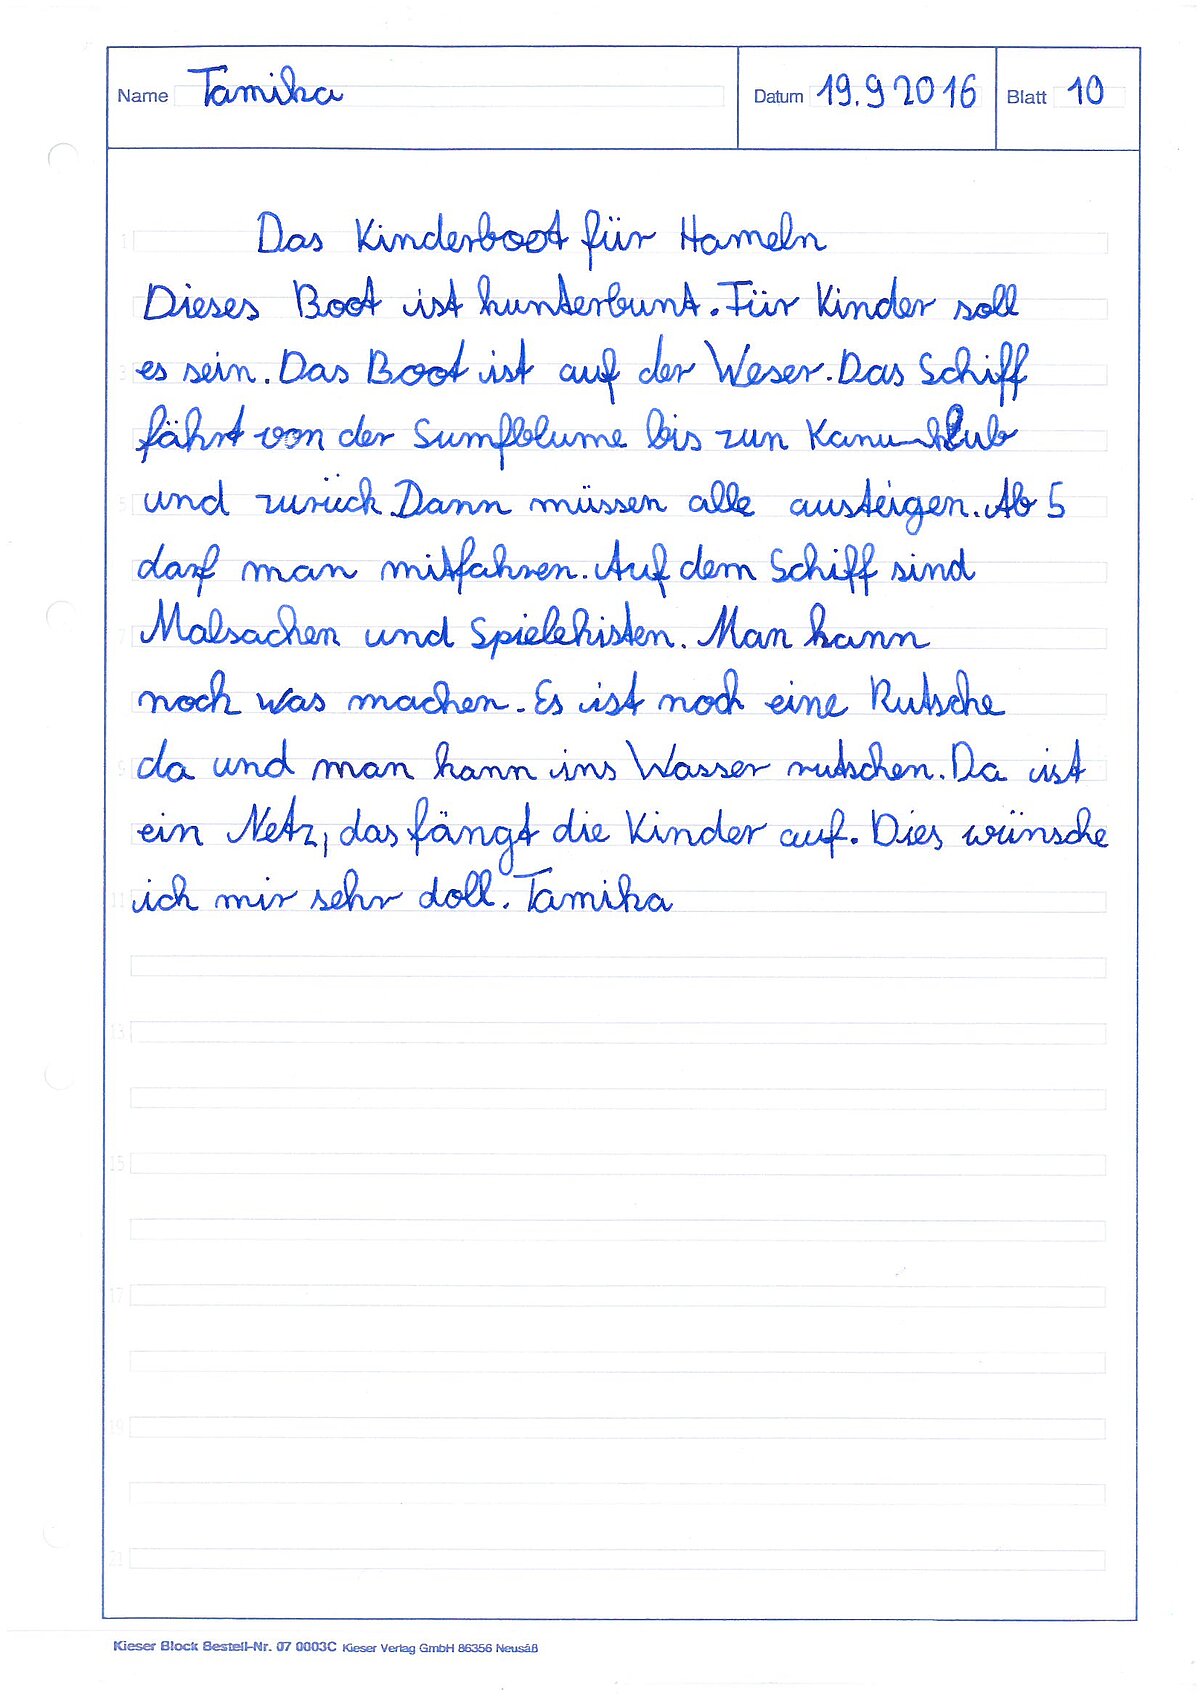 Name Tamika Datum 19.9 2016 Blatt 10
Das Kinderboot für Hameln
Dieses Boot ist kunterbunt. Für Kinder soll
es sein. Das Boot ist auf der Weser. Das Schiff
fährt von der Sumfblume bis zun Kanu-Klub
und zurück. Dann müssen alle austeigen. Ab 5
darf man mitfahren. Auf dem Schiff sind
Malsachen und Spielekisten. Man kann
noch was machen. Es ist noch eine Rutsche
da und man kann ins Wasser rutschen. Da ist
ein Netz, das fängt die Kinder auf. Dies wünsche
ich mir sehr doll. Tamika
1
3
5
7
9
11
13
15
17
19
21
Kieser Block Bestell-Nr. 07 0003C Kieser Verlag GmbH 86356 Neusäß